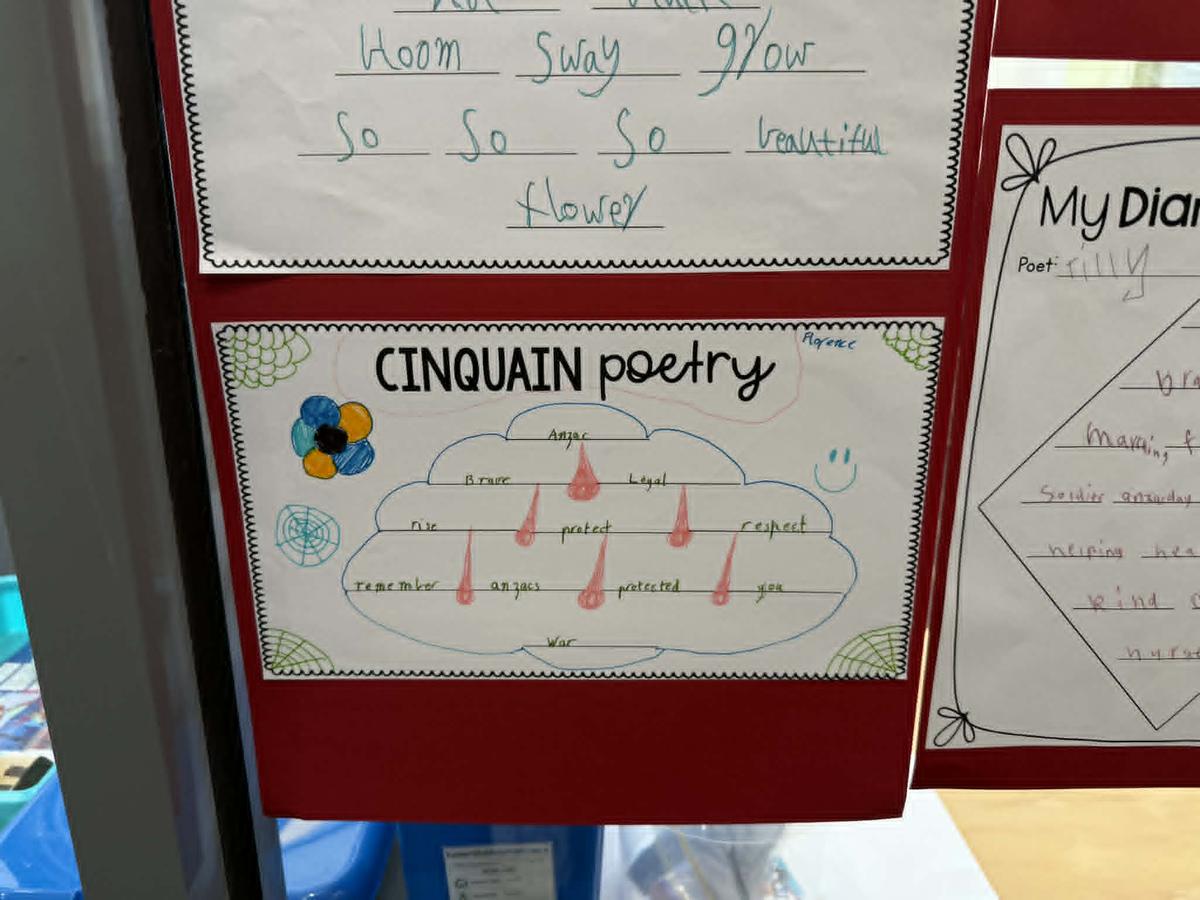 bloom sway grow
So So So beautiful
flower
CINQUAIN poetry
Florence
Anzac
Brave Legal
rise protect respect
remember anzacs protected you
War
My Diar
Poet: Tilly
bra
Marning f
Soldier anzacday
helping hea
kind s
nurse